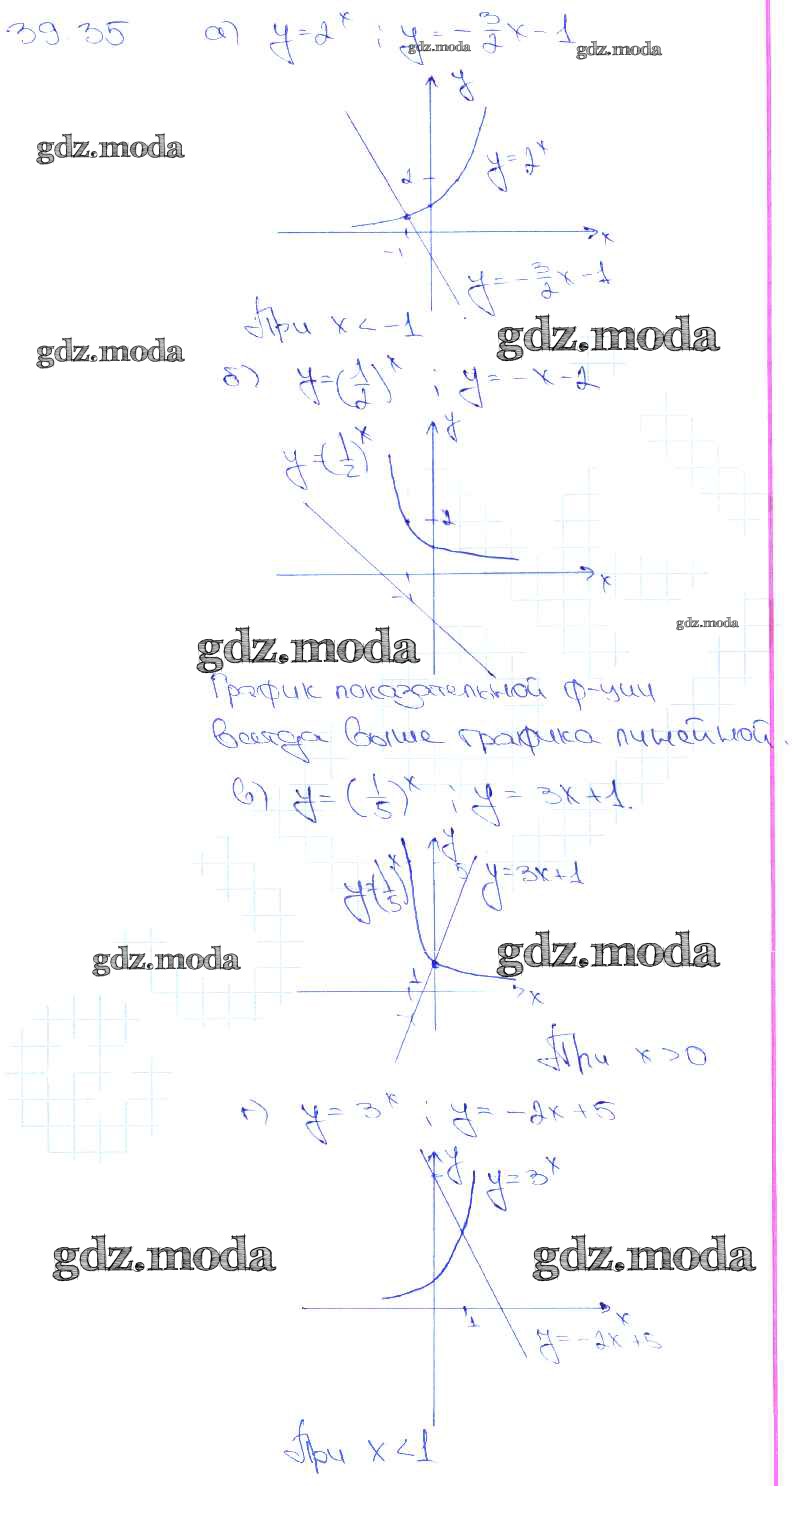 39.35 а) y=2^x ; y=-3/2x-1
gdz.moda
gdz.moda
gdz.moda
y
y=2^x
2
x
-1
y=-3/2x-1
При x<-1
gdz.moda
gdz.moda
б) y=(1/2)^x ; y=-x-2
y
y=(1/2)^x
2
x
-1
gdz.moda
gdz.moda
График показательной ф-ции
всегда выше графика линейной.
в) y=(1/5)^x ; y=3x+1.
y
5
y=(1/5)^x
y=3x+1
gdz.moda
gdz.moda
1
x
-1
При x>0
г) y=3^x ; y=-2x+5
y
y=3^x
gdz.moda
gdz.moda
1
x
y=-2x+5
При x<1